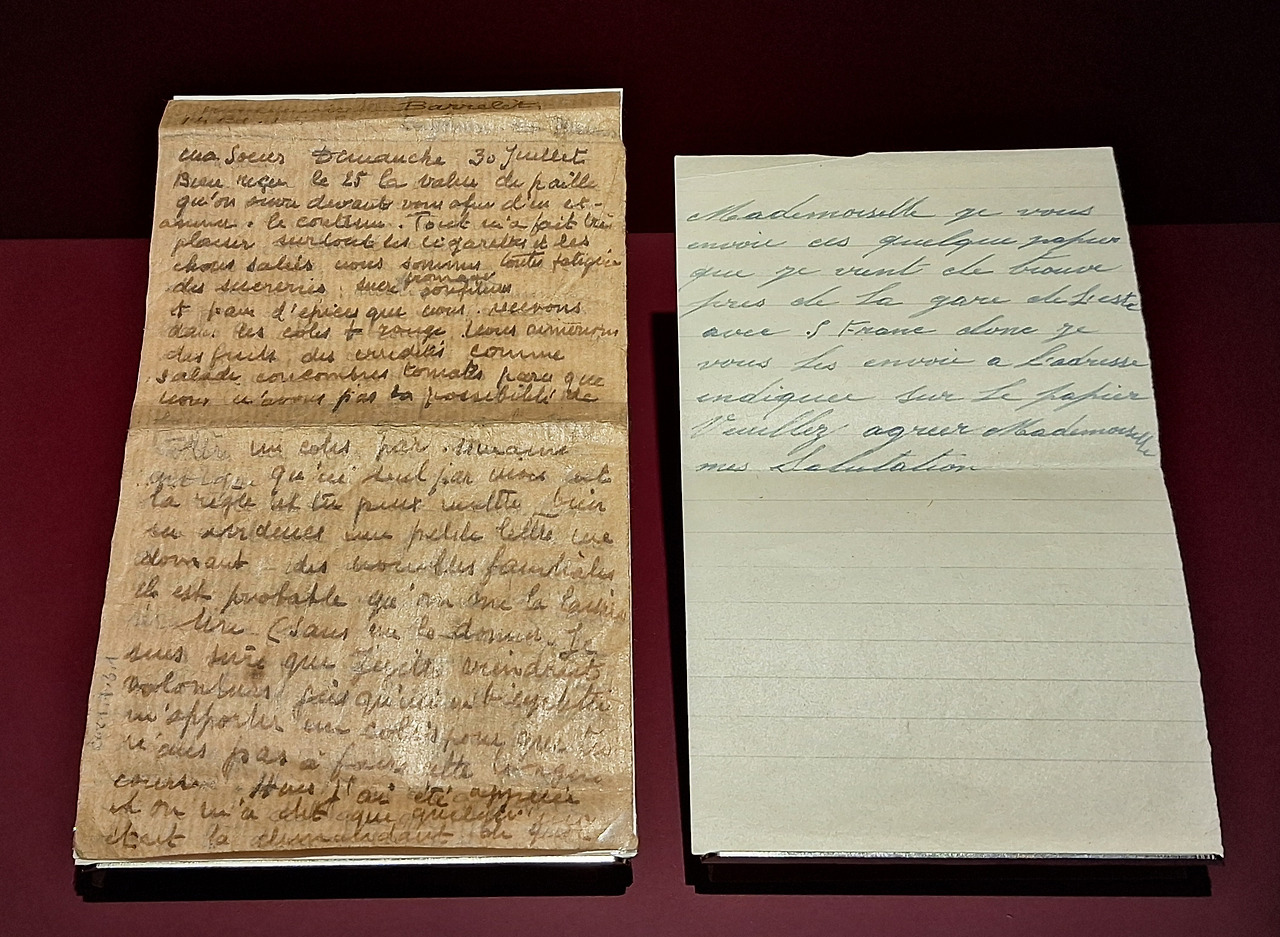 Barrelet
ma Soeur Dimanche 30 Juillet
Bien reçu le 25 la valise de paille
qu'on ouvre devant vous afin d'en et-
le contenu. Tout m'a fait très
plaisir surtout les cigarettes et les
choses salées nous sommes toutes fatiguées
des sucreries sucre fromage confitures
et pain d'épices que nous recevons
dans les colis + rouge. Nous aimerions
des fruits des crudités comme
salade concombres tomates parce que
nous n'avons pas la possibilité de
un colis par semaine
quoique qu'un seul par mois soit
la règle et tu peux mettre bien
en évidence une petite lettre me
donnant des nouvelles familiales
il est probable qu'on me la laissera
lire (sans me la donner. Je
suis sûre que viendrait
volontiers à bicyclette
m'apporter un colis pour que tu
n'aies pas à faire cette longue
course. Hier j'ai été appelée
et on m'a dit que quelqu'un
était là demandant de
Mademoiselle je vous
envoie ces quelque papier
que je vient de trouver
pres de La gare de L'este
avec 5 Franc donc je
vous Les envoie a l'adresse
indiquer sur Le papier
Veuillez agreer Mademoiselle
mes Salutation